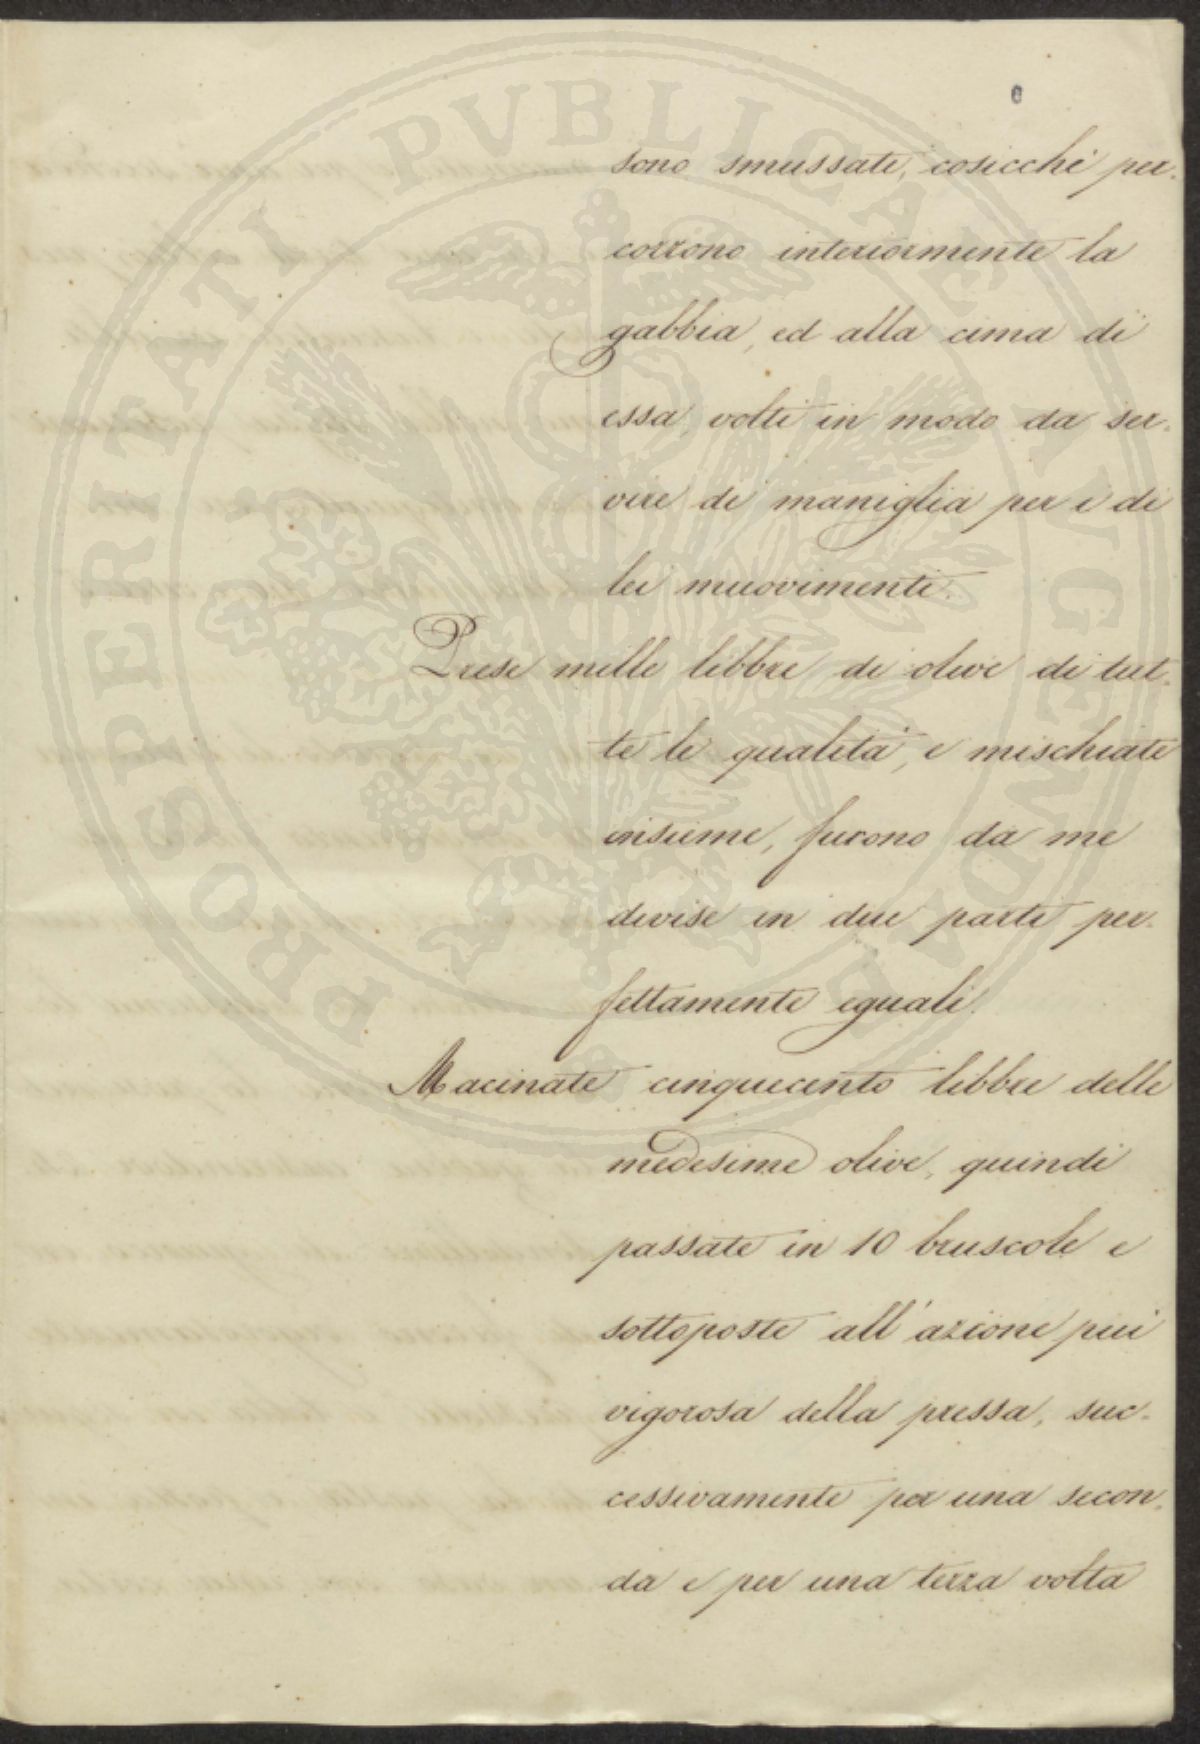 sono smussate, cosicchè per-
corrono interiormente la
gabbia, ed alla cima di
essa, volti in modo da ser-
vire di maniglia per i di
lei muovimenti.
Prese mille libbre di olive di tut-
te le qualità, e mischiate
insieme, furono da me
divise in due parti per-
fettamente eguali.
Macinate cinquecento libbre delle
medesime olive, quindi
passate in 10 bruscole e
sottoposte all'azione più
vigorosa della pressa, suc-
cessivamente per una secon-
da e per una terza volta
PROSPERITATI PVBLICAE AVGENDAE